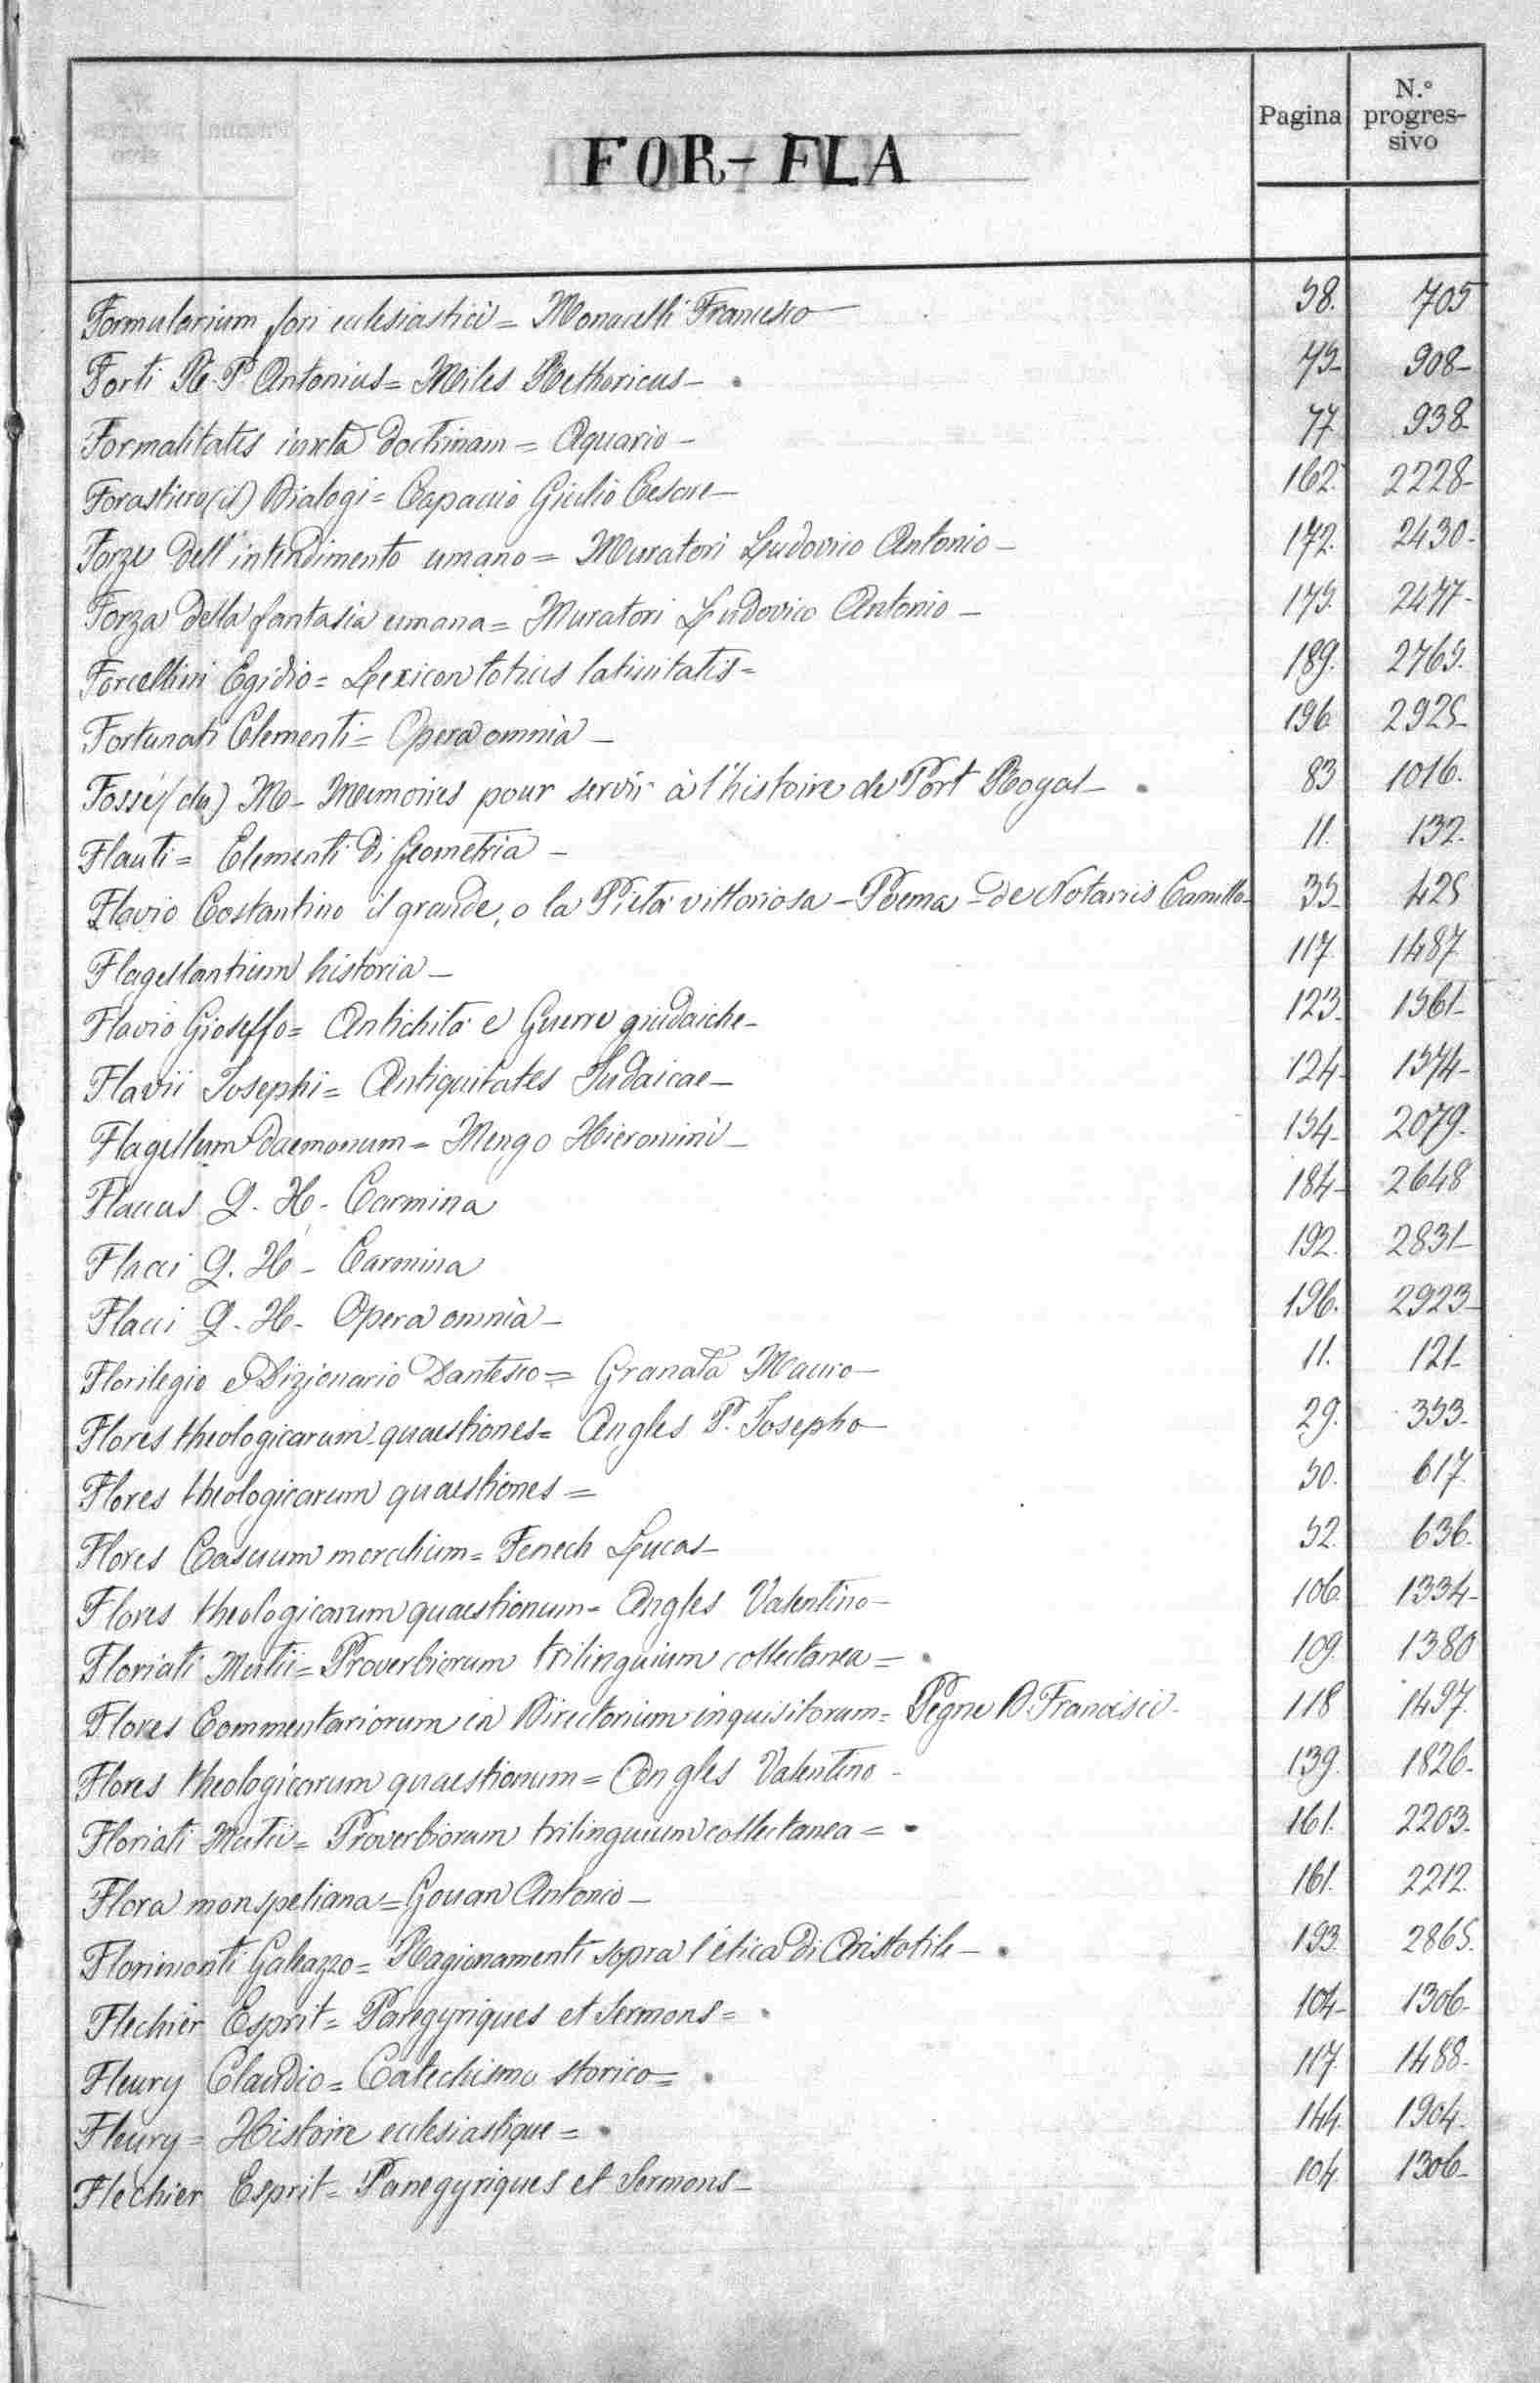 Pagina
N.° progressivo
FOR - FLA
Formularium fori ecclesiastici = Monacelli Francesco — 58. 705
Forti R. P. Antonius = Miles Rethoricus - 75- 908-
Formalitates iuxta doctrinam = Aquario - 77 938-
Forastiero (il) Dialogi = Capaccio Giulio Cesare - 162. 2228-
Forze dell'intendimento umano = Muratori Ludovico Antonio - 172. 2430-
Forza della fantasia umana = Muratori Ludovico Antonio - 175. 2477-
Forcellini Egidio = Lexicon totius latinitatis = 189. 2765.
Fortunati Clementi = Opera omnia - 196 2925-
Fossé (du) M - Memoires pour servir à l'histoire de Port Royal - 83 1016.
Flauti = Elementi di Geometria - 11. 132.
Flavio Costantino il grande, o la Pietà vittoriosa - Poema - de Notariis Camillo - 35- 425
Flagellantium historia - 117 1487
Flavio Gioseffo = Antichità e Guerre giudaiche - 123- 1561-
Flavii Josephi = Antiquitates Judaicae - 124- 1574-
Flagellum daemonum = Mengo Hieronimi - 154- 2079.
Flaccus Q. H. - Carmina 184- 2648
Flacci Q. H - Carmina 192. 2831-
Flacci Q. H. Opera omnia - 196. 2923-
Florilegio e Dizionario Dantesco = Granata Mauro - 11. 121-
Flores theologicarum quaestiones = Angles P. Josepho - 29. 353-
Flores theologicarum quaestiones = 50. 617.
Flores Casuum moralium = Fenech Lucas - 52. 636.
Flores theologicarum quaestionum = Angles Valentino - 106. 1334-
Floriati Mutii = Proverbiorum trilinguium collectanea = 109. 1380
Flores Commentariorum in Directorium inquisitorum = Pegne D. Francisci - 118 1497.
Flores theologicarum quaestionum = Angles Valentino - 139. 1826-
Floriati Mutii = Proverbiorum trilinguium collectanea = 161. 2203.
Flora monspeliana = Gouan Antonio - 161. 2212.
Florimonti Galeazzo = Ragionamenti sopra l'etica di Aristotile - 193. 2865.
Flechier Esprit = Panegyriques et Sermons = 104- 1306-
Fleury Claudio = Catechismo storico = 117. 1488-
Fleury = Histoire ecclesiastique = 144. 1904.
Flechier Esprit = Panegyriques et Sermons - 104. 1306-